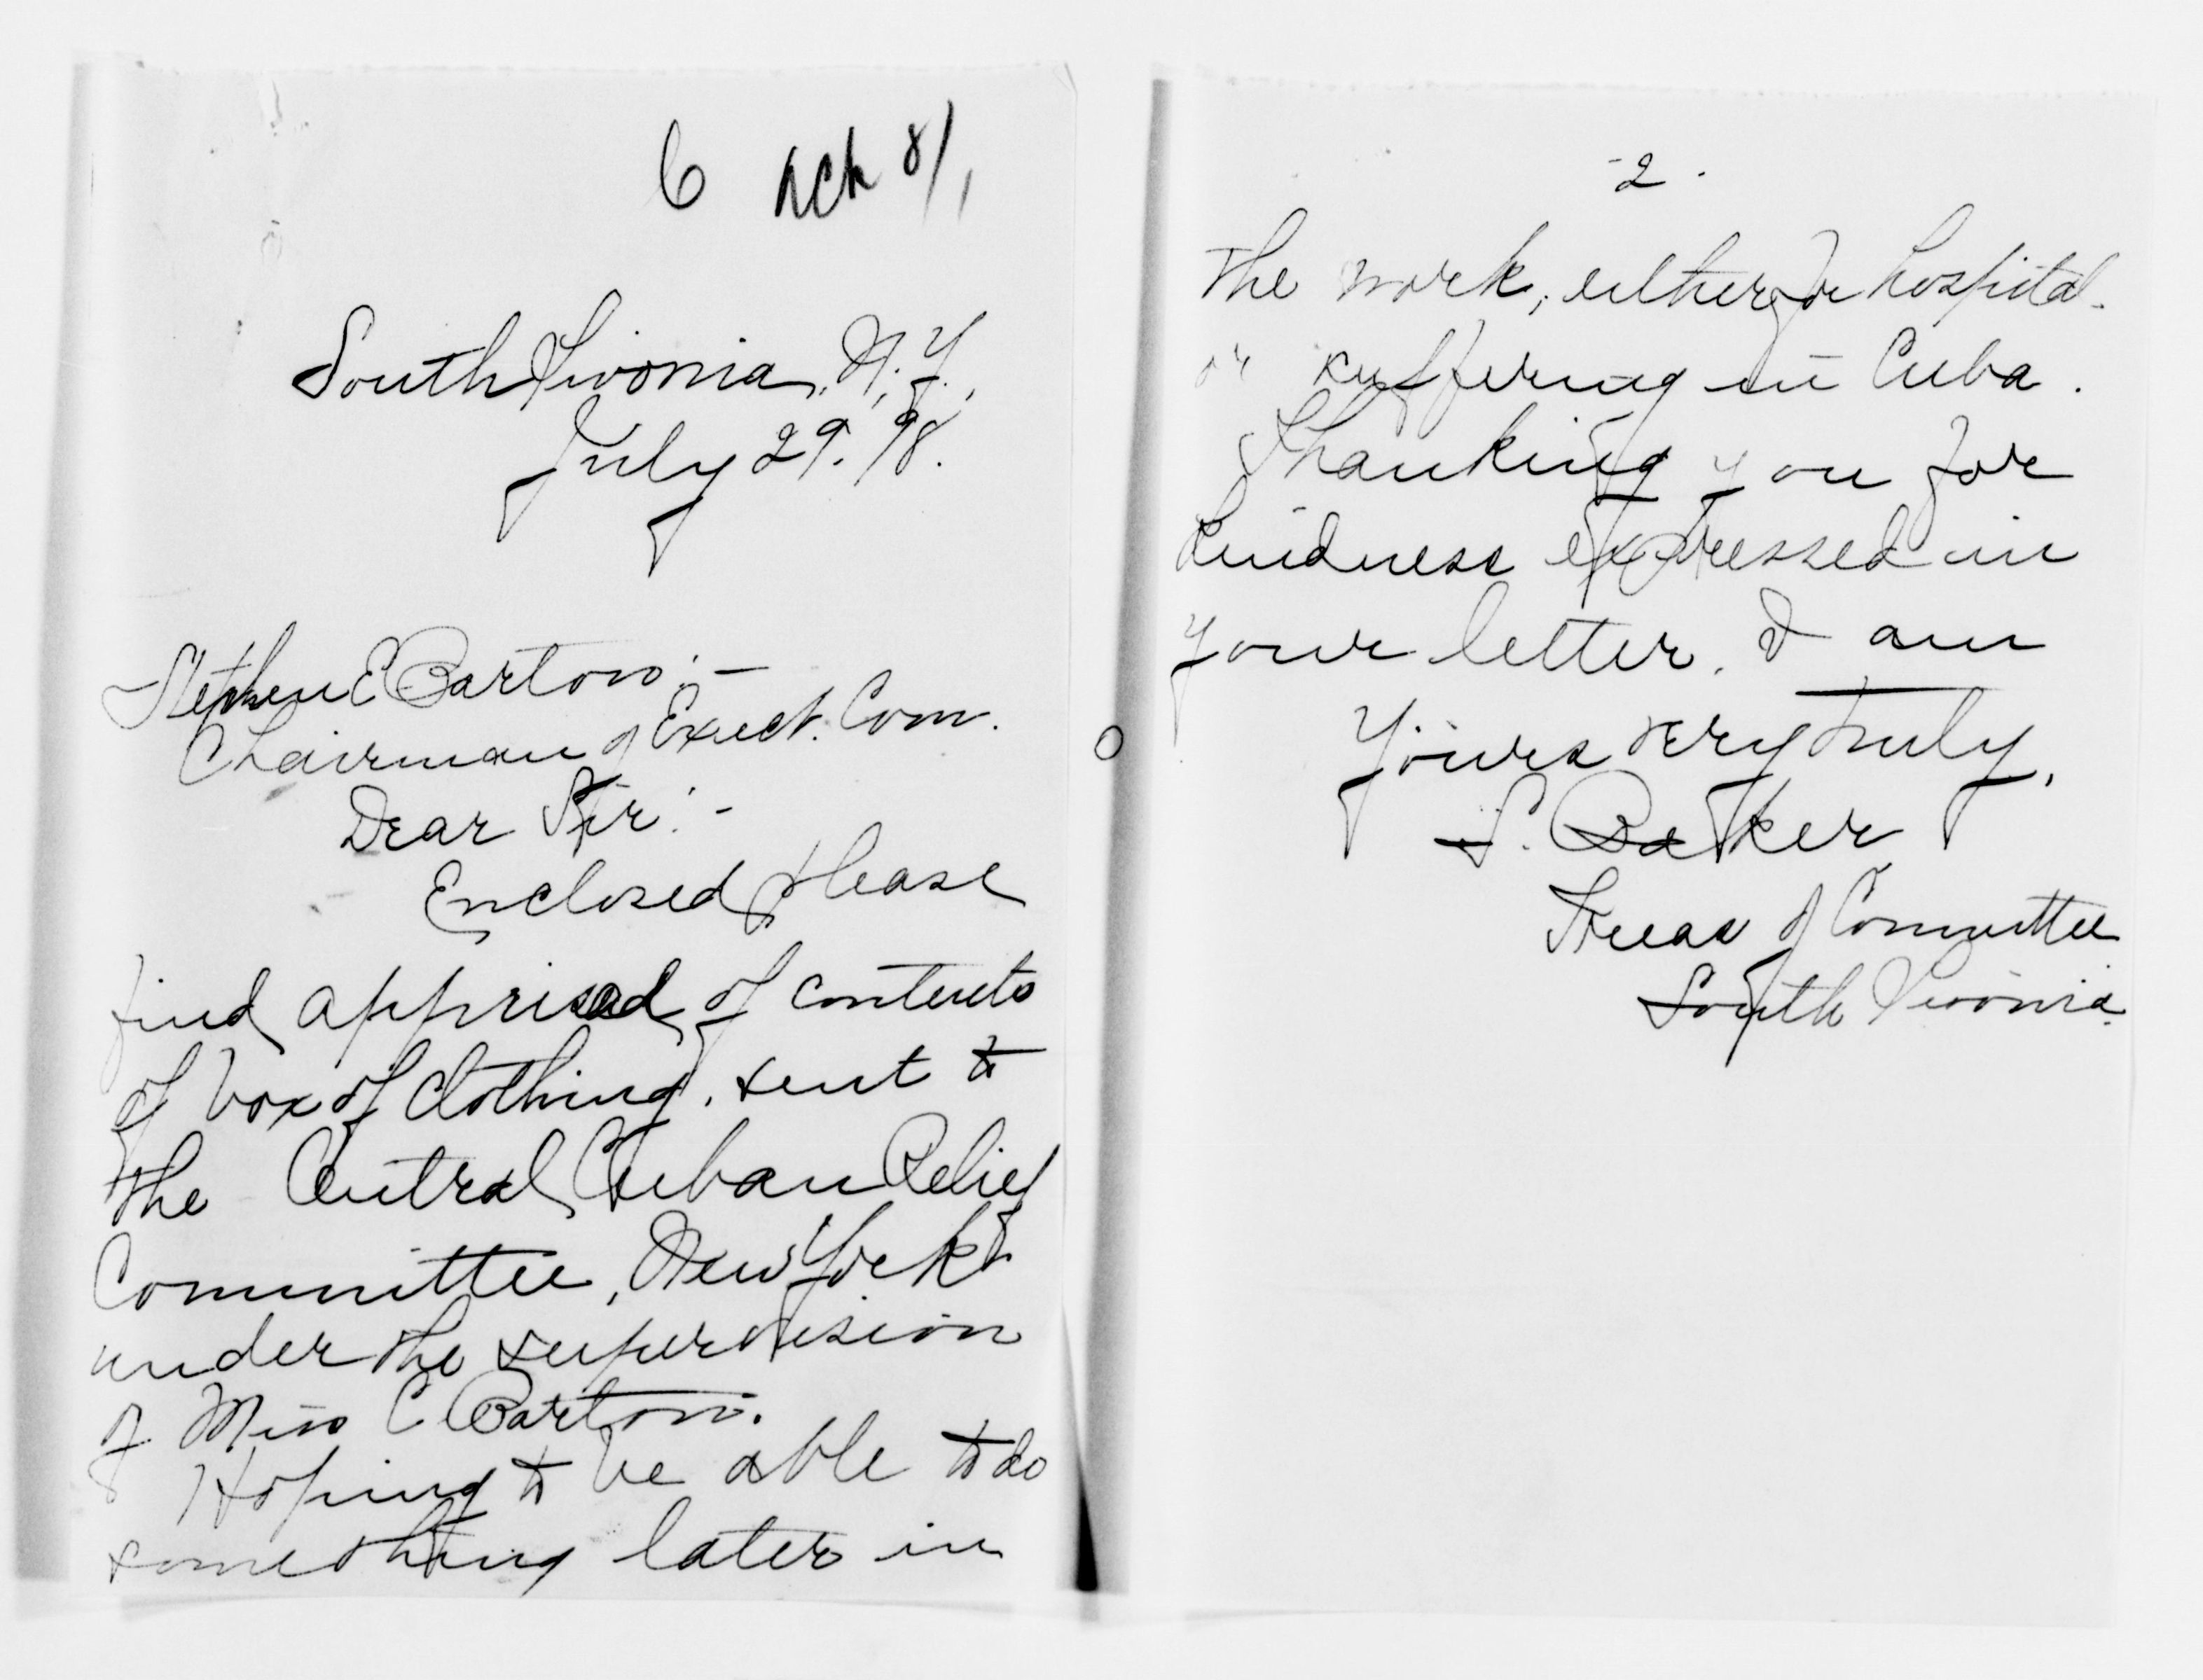 6 Ack 8/1
South Livonia, N.Y.,
July 29. '98.
Stephen E Barton:-
Chairman of Exect. Com.
Dear Sir:-
Enclosed please
find apprisal of contents
of box of clothing, sent to
the Central Cuban Relief
Committee, New York
under the supervision
of Miss C Barton.
Hoping to be able to do
something later in
-2.
the work, either for hospital
or suffering in Cuba.
Thanking you for
kindness expressed in
your letter. I am
Yours very truly,
S. Barker
Treas of Committee
South Livonia.